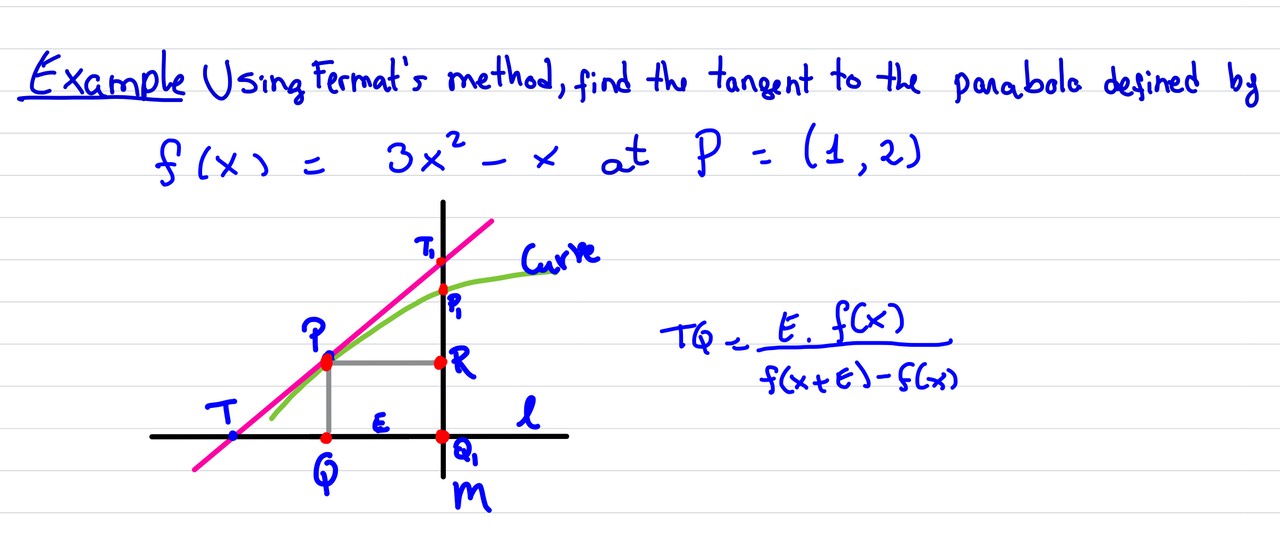 Example Using Fermat's method, find the tangent to the parabola defined by
f(x) = 3x² - x at P = (1,2)
T₁
Curve
P₁
P
R
TQ = E. f(x) / f(x+E)-f(x)
T
E
l
Q
Q₁
m